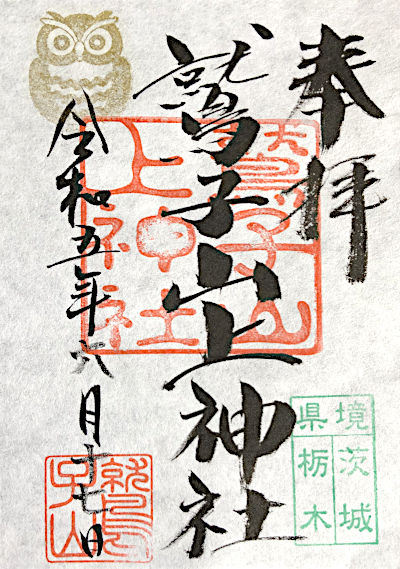 奉拝
鷲子山上神社
令和五年六月十七日
鷲子山上神社
境 茨城
県 栃木
鷲子山